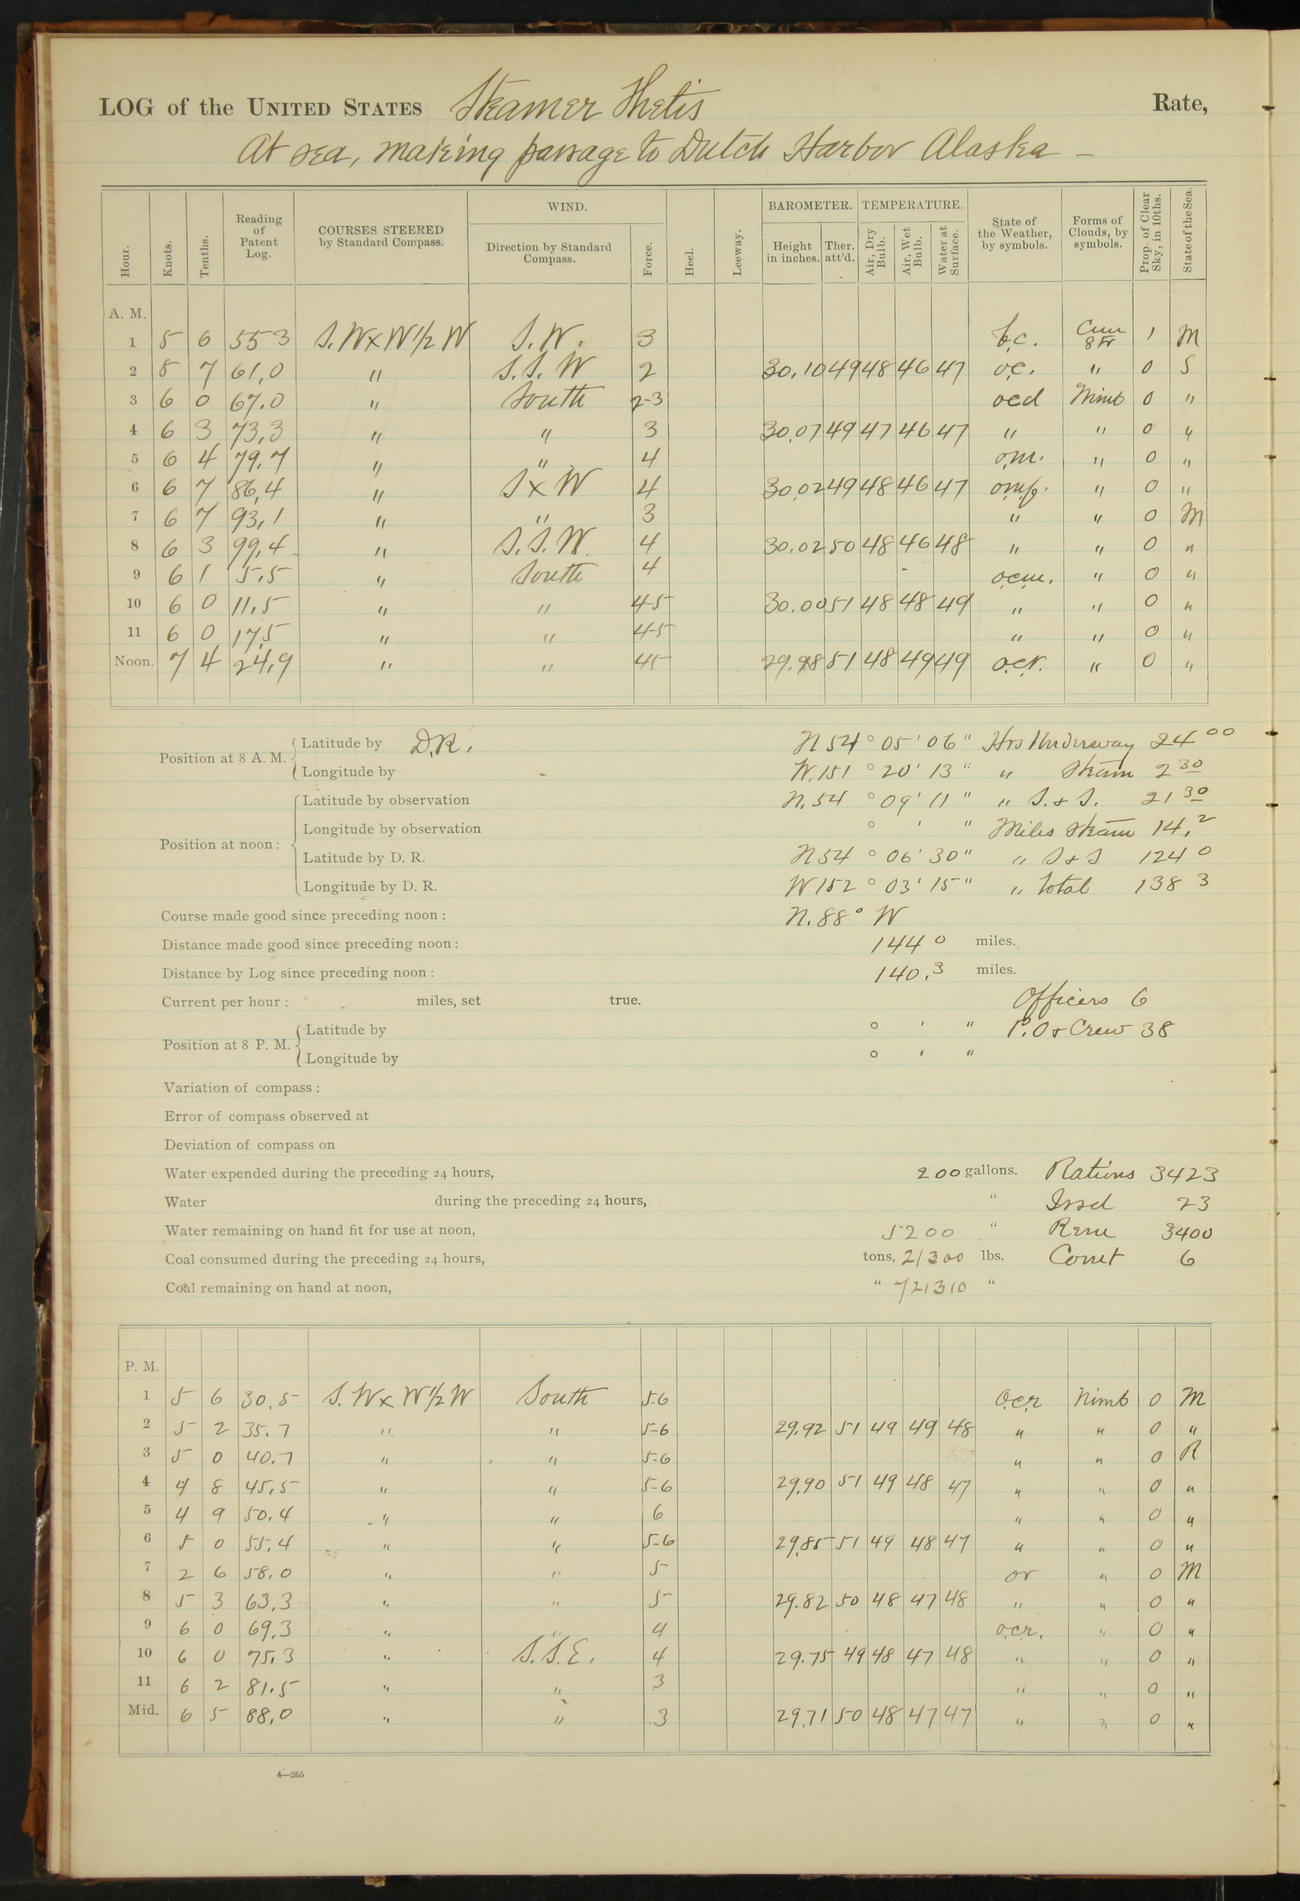 LOG of the UNITED STATES Steamer Thetis Rate,
At sea, making passage to Dutch Harbor Alaska —
Hour. Knots. Tenths. Reading of Patent Log. COURSES STEERED by Standard Compass. WIND. Direction by Standard Compass. Force. Heel. Leeway. BAROMETER. Height in inches. Ther. att'd. TEMPERATURE. Air, Dry Bulb. Air, Wet Bulb. Water at Surface. State of the Weather, by symbols. Forms of Clouds, by symbols. Prop. of Clear Sky, in 10ths. State of the Sea.
A. M.
1 5 6 55 3 S.WxW1/2W S.W. 3 b.c. Cum 1 M
2 8 7 61,0 " S.S.W 2 30.10 49 48 46 47 o.c. " 0 S
3 6 0 67.0 " South 2-3 ocd Nimb 0 "
4 6 3 73,3 " " 3 30.07 49 47 46 47 " " 0 "
5 6 4 79.7 " " 4 o.m. " 0 "
6 6 7 86,4 " SxW 4 30.02 49 48 46 47 omp. " 0 "
7 6 7 93,1 " " 3 " " 0 M
8 6 3 99,4 " S.S.W. 4 30.02 50 48 46 48 " " 0 "
9 6 1 5.5 " South 4 o.c.m. " 0 "
10 6 0 11,5 " " 4-5 30.00 51 48 48 49 " " 0 "
11 6 0 17,5 " " 4-5 " " 0 "
Noon. 7 4 24,9 " " 45 29.98 51 48 49 49 o.c.r. " 0 "
Position at 8 A. M. Latitude by D.R. N 54° 05' 06" Hrs Underway 24 00
Longitude by W. 151° 20' 13" " Steam 2 30
Position at noon: Latitude by observation N. 54° 09' 11" " S. & S. 21 30
Longitude by observation ° ' " Miles Steam 14,2
Latitude by D. R. N 54° 06' 30" " S & S 124 0
Longitude by D. R. W 152° 03' 15" " Total 138 3
Course made good since preceding noon: N. 88° W
Distance made good since preceding noon: 144 0 miles.
Distance by Log since preceding noon: 140.3 miles.
Current per hour: miles, set true. Officers 6
Position at 8 P. M. Latitude by ° ' " P.O & Crew 38
Longitude by ° ' "
Variation of compass:
Error of compass observed at
Deviation of compass on
Water expended during the preceding 24 hours, 200 gallons. Rations 3423
Water during the preceding 24 hours, " Issd 23
Water remaining on hand fit for use at noon, 5200 " Rem 3400
Coal consumed during the preceding 24 hours, tons, 21300 lbs. 6
Coal remaining on hand at noon, " 721310 "
P. M.
1 5 6 30,5 S.WxW1/2W South 5.6 o.c.r Nimb 0 M
2 5 2 35.7 " " 5-6 29.92 51 49 49 48 " " 0 "
3 5 0 40.7 " " 5-6 " " 0 R
4 4 8 45,5 " " 5-6 29.90 51 49 48 47 " " 0 "
5 4 9 50.4 " " 6 " " 0 "
6 5 0 55.4 " " 5-6 29.85 51 49 48 47 " " 0 "
7 2 6 58.0 " " 5 or " 0 M
8 5 3 63,3 " " 5 29.82 50 48 47 48 " " 0 "
9 6 0 69,3 " " 4 o.c.r. " 0 "
10 6 0 75,3 " S.S.E. 4 29.75 49 48 47 48 " " 0 "
11 6 2 81.5 " " 3 " " 0 "
Mid. 6 5 88,0 " " 3 29.71 50 48 47 47 " " 0 "
4—265